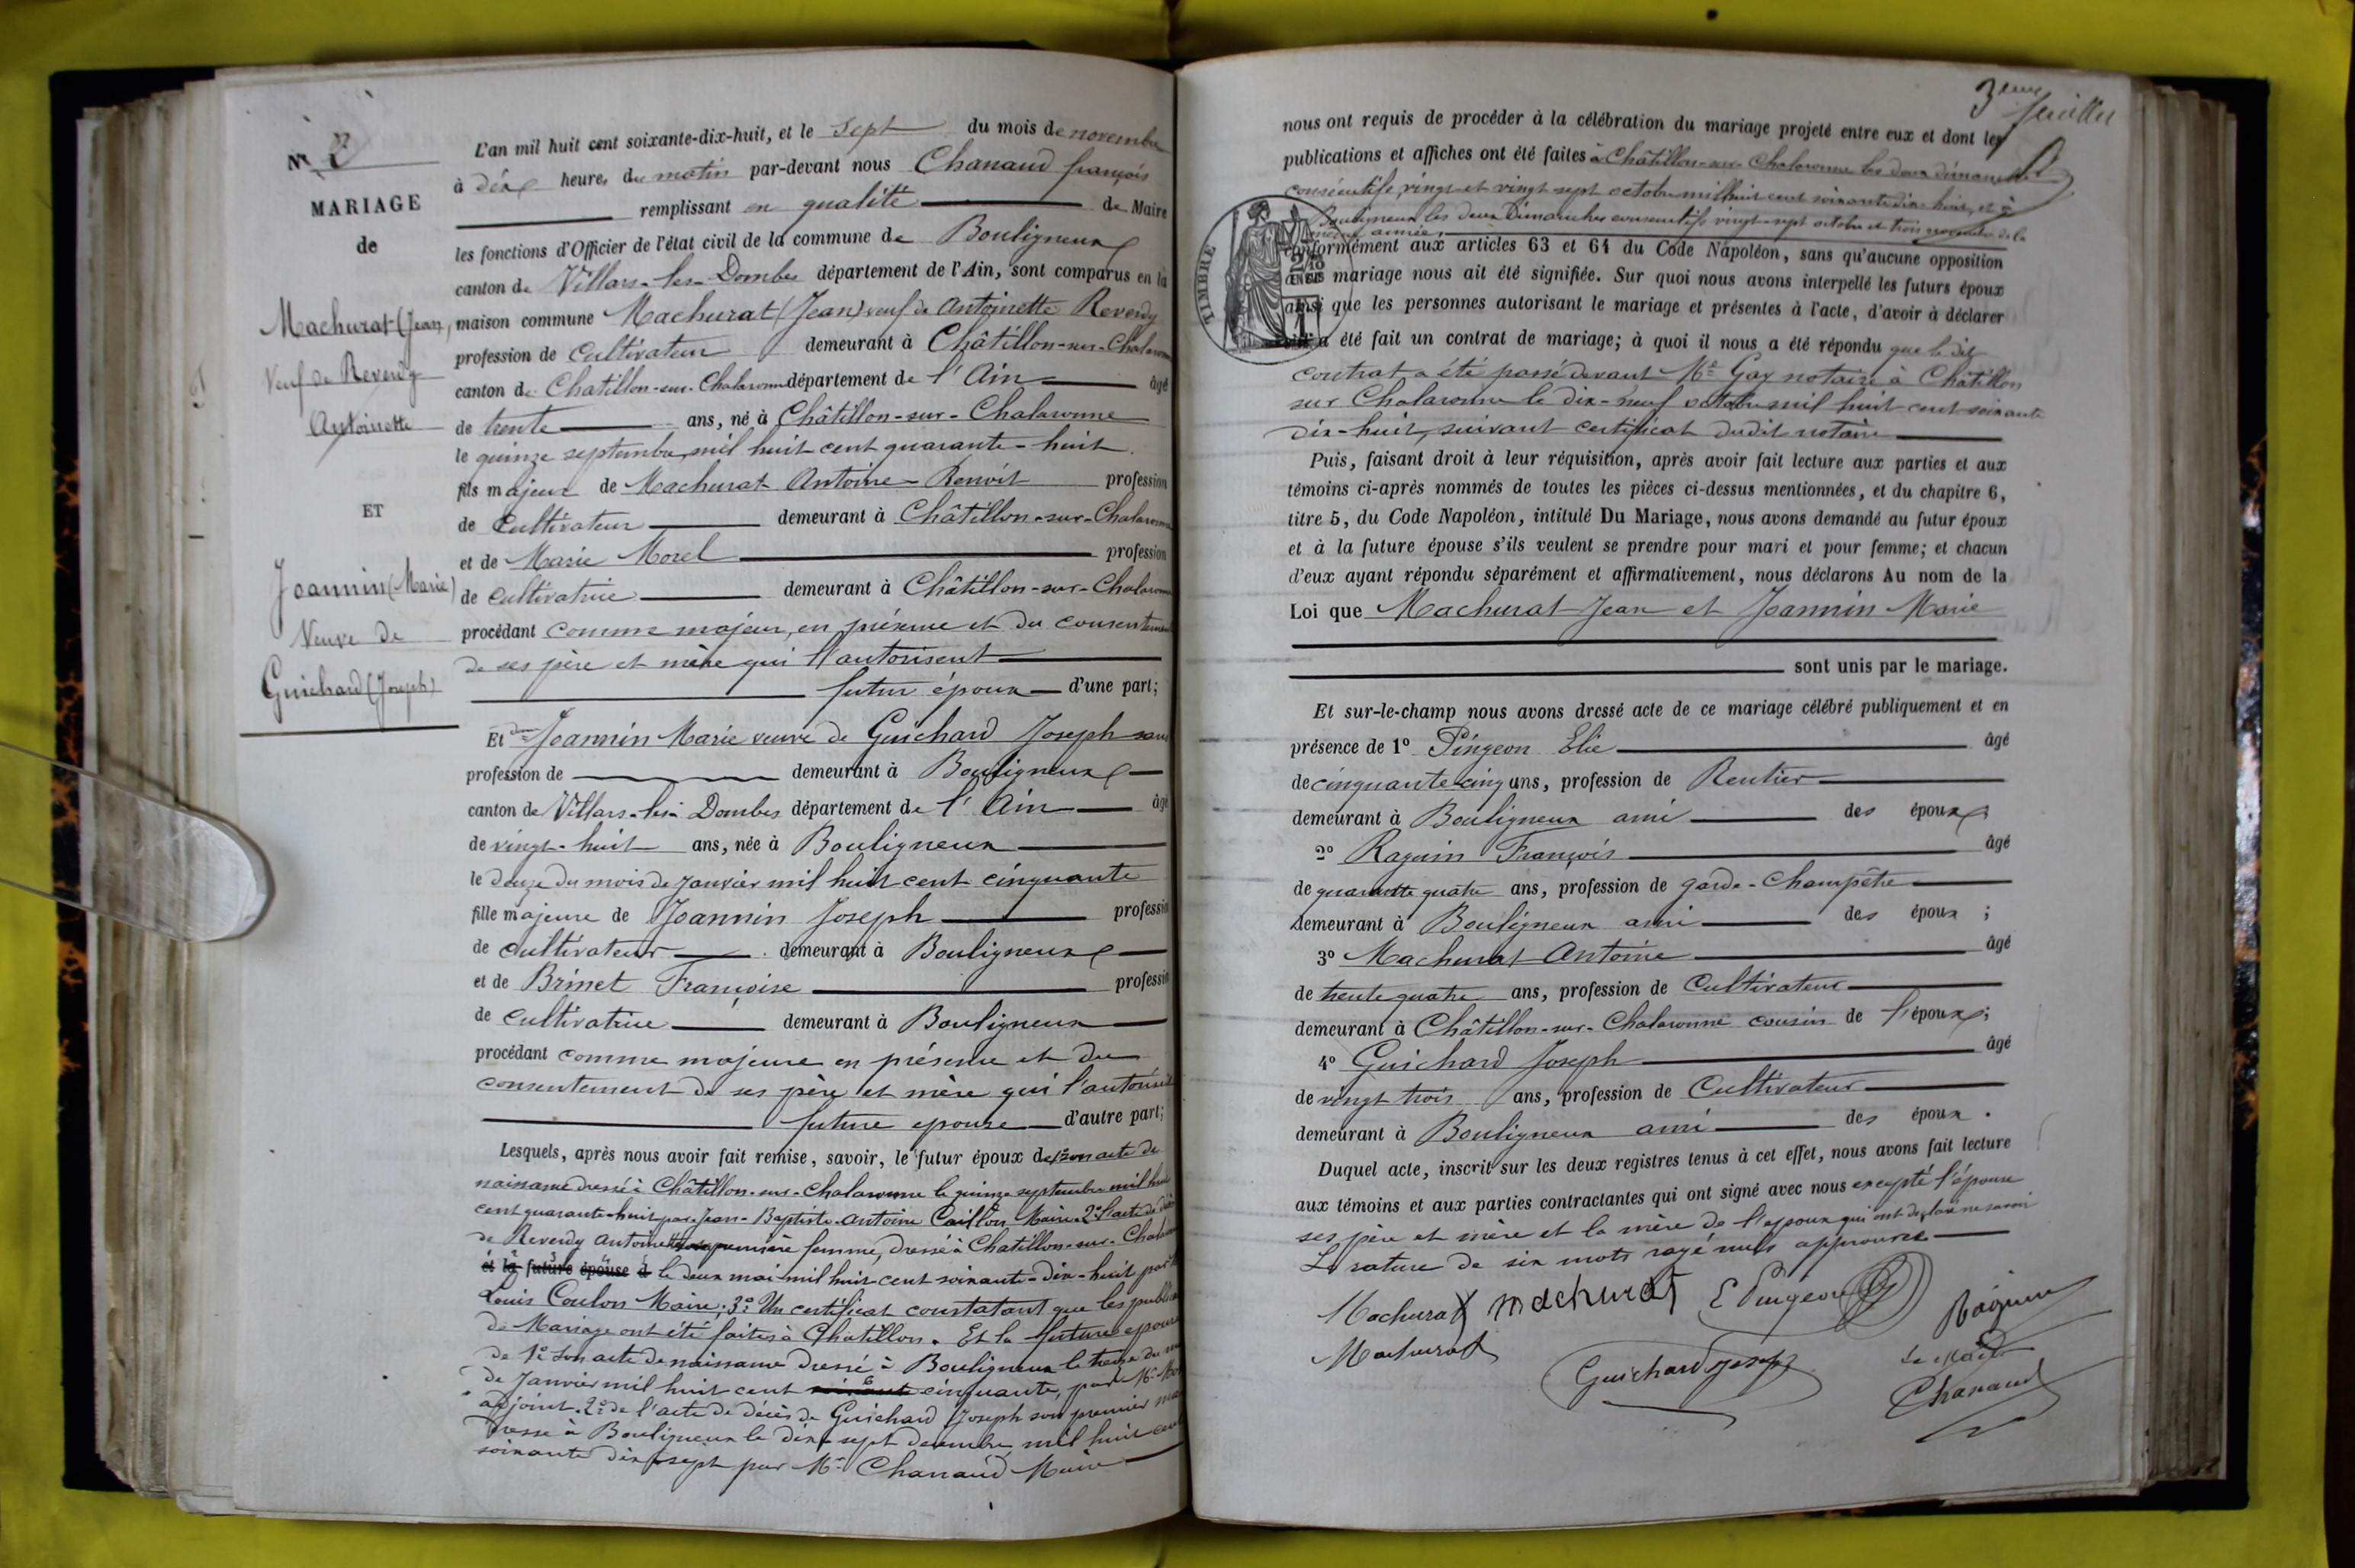 N° 2
MARIAGE
de
Machurat (Jean,
Veuf de Reverdy
Antoinette
ET
Joannin (Marie)
Veuve de
Guichard (Joseph)
L'an mil huit cent soixante-dix-huit, et le sept du mois de novembre
à dix heures du matin par-devant nous Chanaud françois
remplissant en qualité de Maire
les fonctions d'Officier de l'état civil de la commune de Bouligneux
canton de Villars-les-Dombes département de l'Ain, sont comparus en la
maison commune Machurat (Jean) veuf de Antoinette Reverdy
profession de Cultivateur demeurant à Châtillon-sur-Chalaronne
canton de Chatillon-sur-Chalaronne département de l'Ain âgé
de trente ans, né à Châtillon-sur-Chalaronne
le quinze septembre mil huit cent quarante-huit.
fils majeur de Machurat Antoine-Benoît profession
de Cultivateur demeurant à Châtillon-sur-Chalaronne
et de Marie Morel profession
de Cultivatrice demeurant à Châtillon-sur-Chalaronne
procédant comme majeur, en présence et du consentement
de ses père et mère qui l'autorisent
futur époux d'une part;
Et dme Joannin Marie veuve de Guichard Joseph sans
profession de demeurant à Bouligneux
canton de Villars-les-Dombes département de l'Ain âgé
de vingt-huit ans, née à Bouligneux
le douze du mois de Janvier mil huit cent cinquante
fille majeure de Joannin Joseph profession
de cultivateur demeurant à Bouligneux
et de Brinet Françoise profession
de Cultivatrice demeurant à Bouligneux
procédant comme majeure en présence et du
consentement de ses père et mère qui l'autorisent
future epouse d'autre part;
Lesquels, après nous avoir fait remise, savoir, le futur époux de 1° son acte de
naissance dressé à Châtillon-sur-Chalaronne le quinze septembre mil huit
cent quarante-huit par Jean-Baptiste-Antoine Caillon, Maire. 2° l'acte de décès
de Reverdy Antoinette sa première femme, dressé à Chatillon-sur-Chalaronne
et la future épouse d le deux mai mil huit cent soixante-dix-huit par
Louis Coulon Maire; 3° Un certificat constatant que les publications
de Mariage ont été faites à Chatillon. Et la future epouse
de 1° son acte de naissance dressé à Bouligneux le treize du mois
de Janvier mil huit cent cinquante, par Mr
adjoint. 2° de l'acte de décès de Guichard Joseph son premier mari
dressé à Bouligneux le dix-sept decembre mil huit cent
soixante dix sept par Mr Chanaud Maire
3eme feuillet
nous ont requis de procéder à la célébration du mariage projeté entre eux et dont les
publications et affiches ont été faites à Châtillon-sur-Chalaronne les deux dimanches
consécutifs, vingt et vingt sept octobre mil huit cent soixante dix-huit, et à
Bouligneux les deux Dimanches consecutifs vingt-sept octobre et trois novembre de la
même année.
conformément aux articles 63 et 64 du Code Napoléon, sans qu'aucune opposition
à ce mariage nous ait été signifiée. Sur quoi nous avons interpellé les futurs époux
ainsi que les personnes autorisant le mariage et présentes à l'acte, d'avoir à déclarer
s'il a été fait un contrat de mariage; à quoi il nous a été répondu que le dit
contrat a été passé devant Me Gay notaire à Châtillon
sur Chalaronne le dix-neuf octobre mil huit cent soixante
dix-huit, suivant certificat dudit notaire
TIMBRE
Puis, faisant droit à leur réquisition, après avoir fait lecture aux parties et aux
témoins ci-après nommés de toutes les pièces ci-dessus mentionnées, et du chapitre 6,
titre 5, du Code Napoléon, intitulé Du Mariage, nous avons demandé au futur époux
et à la future épouse s'ils veulent se prendre pour mari et pour femme; et chacun
d'eux ayant répondu séparément et affirmativement, nous déclarons Au nom de la
Loi que Machurat Jean et Joannin Marie
sont unis par le mariage.
Et sur-le-champ nous avons dressé acte de ce mariage célébré publiquement et en
présence de 1° Pingeon Elie âgé
de cinquante-cinq ans, profession de Rentier
demeurant à Bouligneux ami des époux;
2° Raguin François âgé
de quarante quatre ans, profession de garde-Champêtre
demeurant à Bouligneux ami des époux ;
3° Machurat Antoine âgé
de trente quatre ans, profession de Cultivateur
demeurant à Châtillon-sur-Chalaronne cousin de l'époux;
4° Guichard Joseph âgé
de vingt trois ans, profession de Cultivateur
demeurant à Bouligneux ami des époux.
Duquel acte, inscrit sur les deux registres tenus à cet effet, nous avons fait lecture
aux témoins et aux parties contractantes qui ont signé avec nous excepté l'épouse
ses père et mère et la mère de l'epoux qui ont déclaré ne savoir
La rature de six mots rayé nuls approuvée
Machurat machurat E Pingeon Raguin
Machurat Guichard Joseph Le Maire
Chanaud